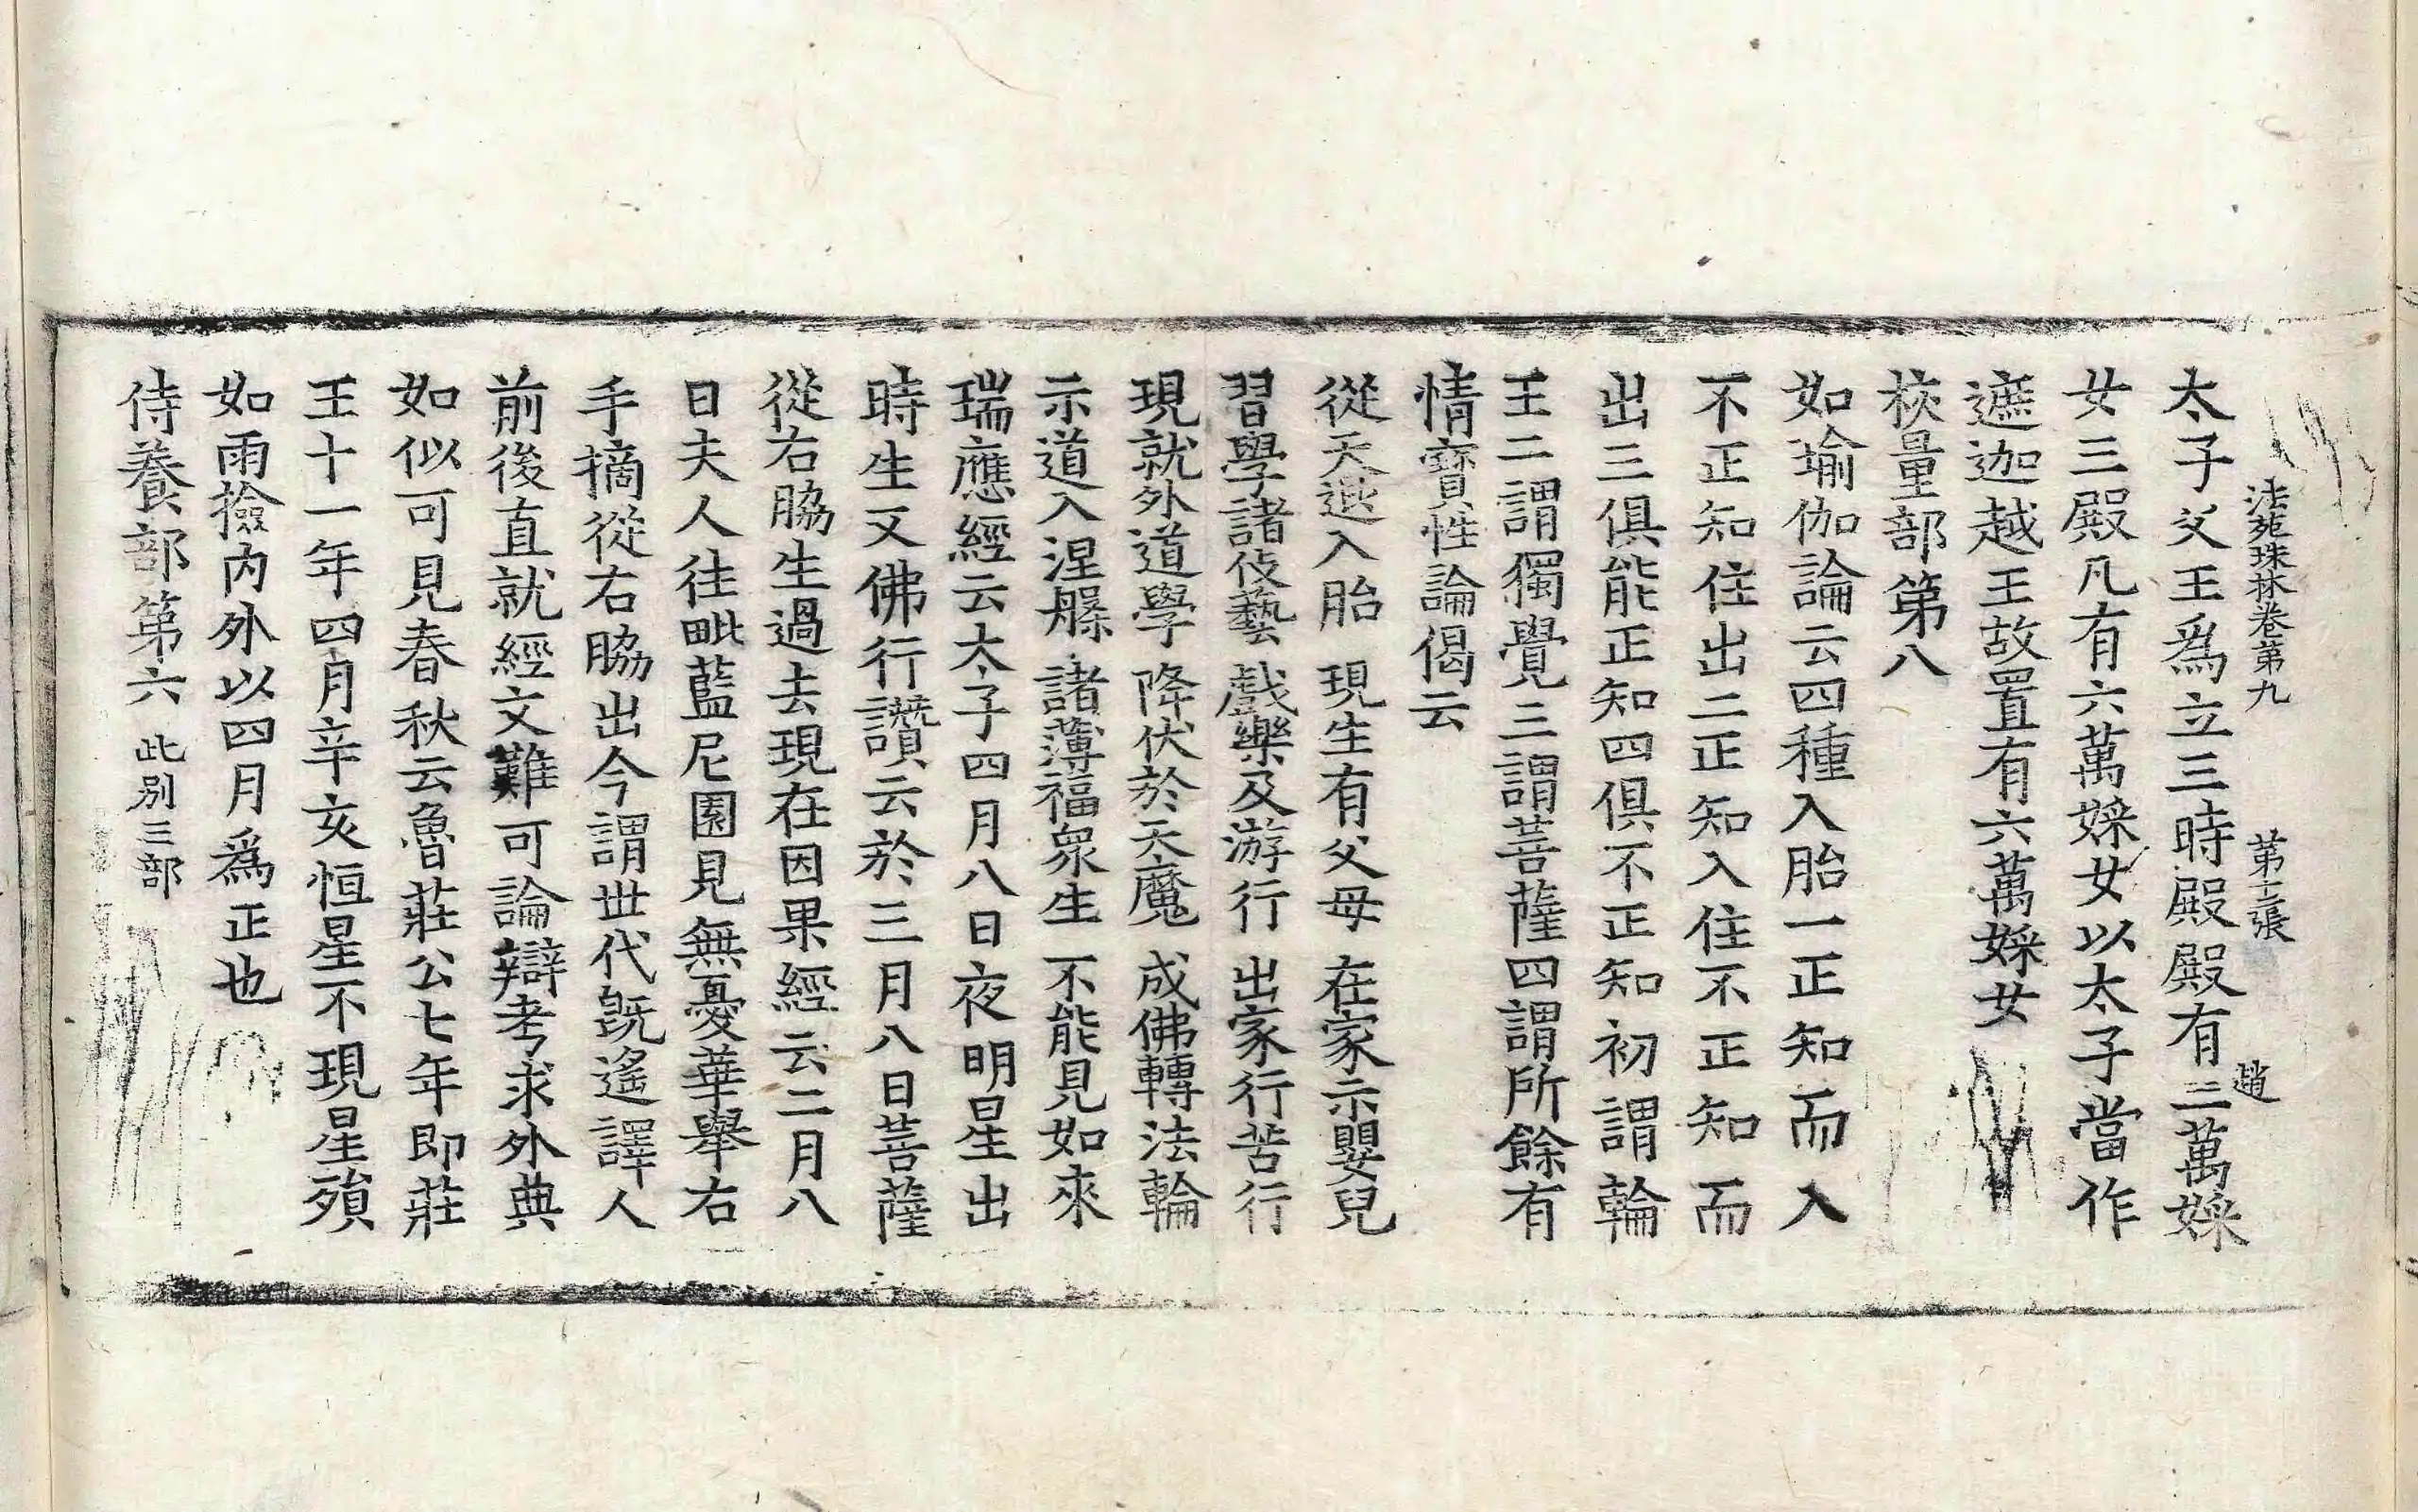 法苑珠林卷第九 第十二張 趙
太子父王爲立三時殿殿有二萬婇
女三殿凡有六萬婇女以太子當作
遮迦越王故置有六萬婇女
校量部第八
如瑜伽論云四種入胎一正知而入
不正知住出二正知入住不正知而
出三俱能正知四俱不正知初謂輪
王二謂獨覺三謂菩薩四謂所餘有
情寶性論偈云
從天退入胎 現生有父母 在家示嬰兒
習學諸伎藝 戲樂及游行 出家行苦行
現就外道學 降伏於天魔 成佛轉法輪
示道入涅槃 諸薄福衆生 不能見如來
瑞應經云太子四月八日夜明星出
時生又佛行讚云於三月八日菩薩
從右脇生過去現在因果經云二月八
日夫人往毗藍尼園見無憂華舉右
手摘從右脇出今謂世代旣遙譯人
前後直就經文難可論辯考求外典
如似可見春秋云魯莊公七年即莊
王十一年四月辛亥恒星不現星殞
如雨撿內外以四月爲正也
侍養部第六 此別三部